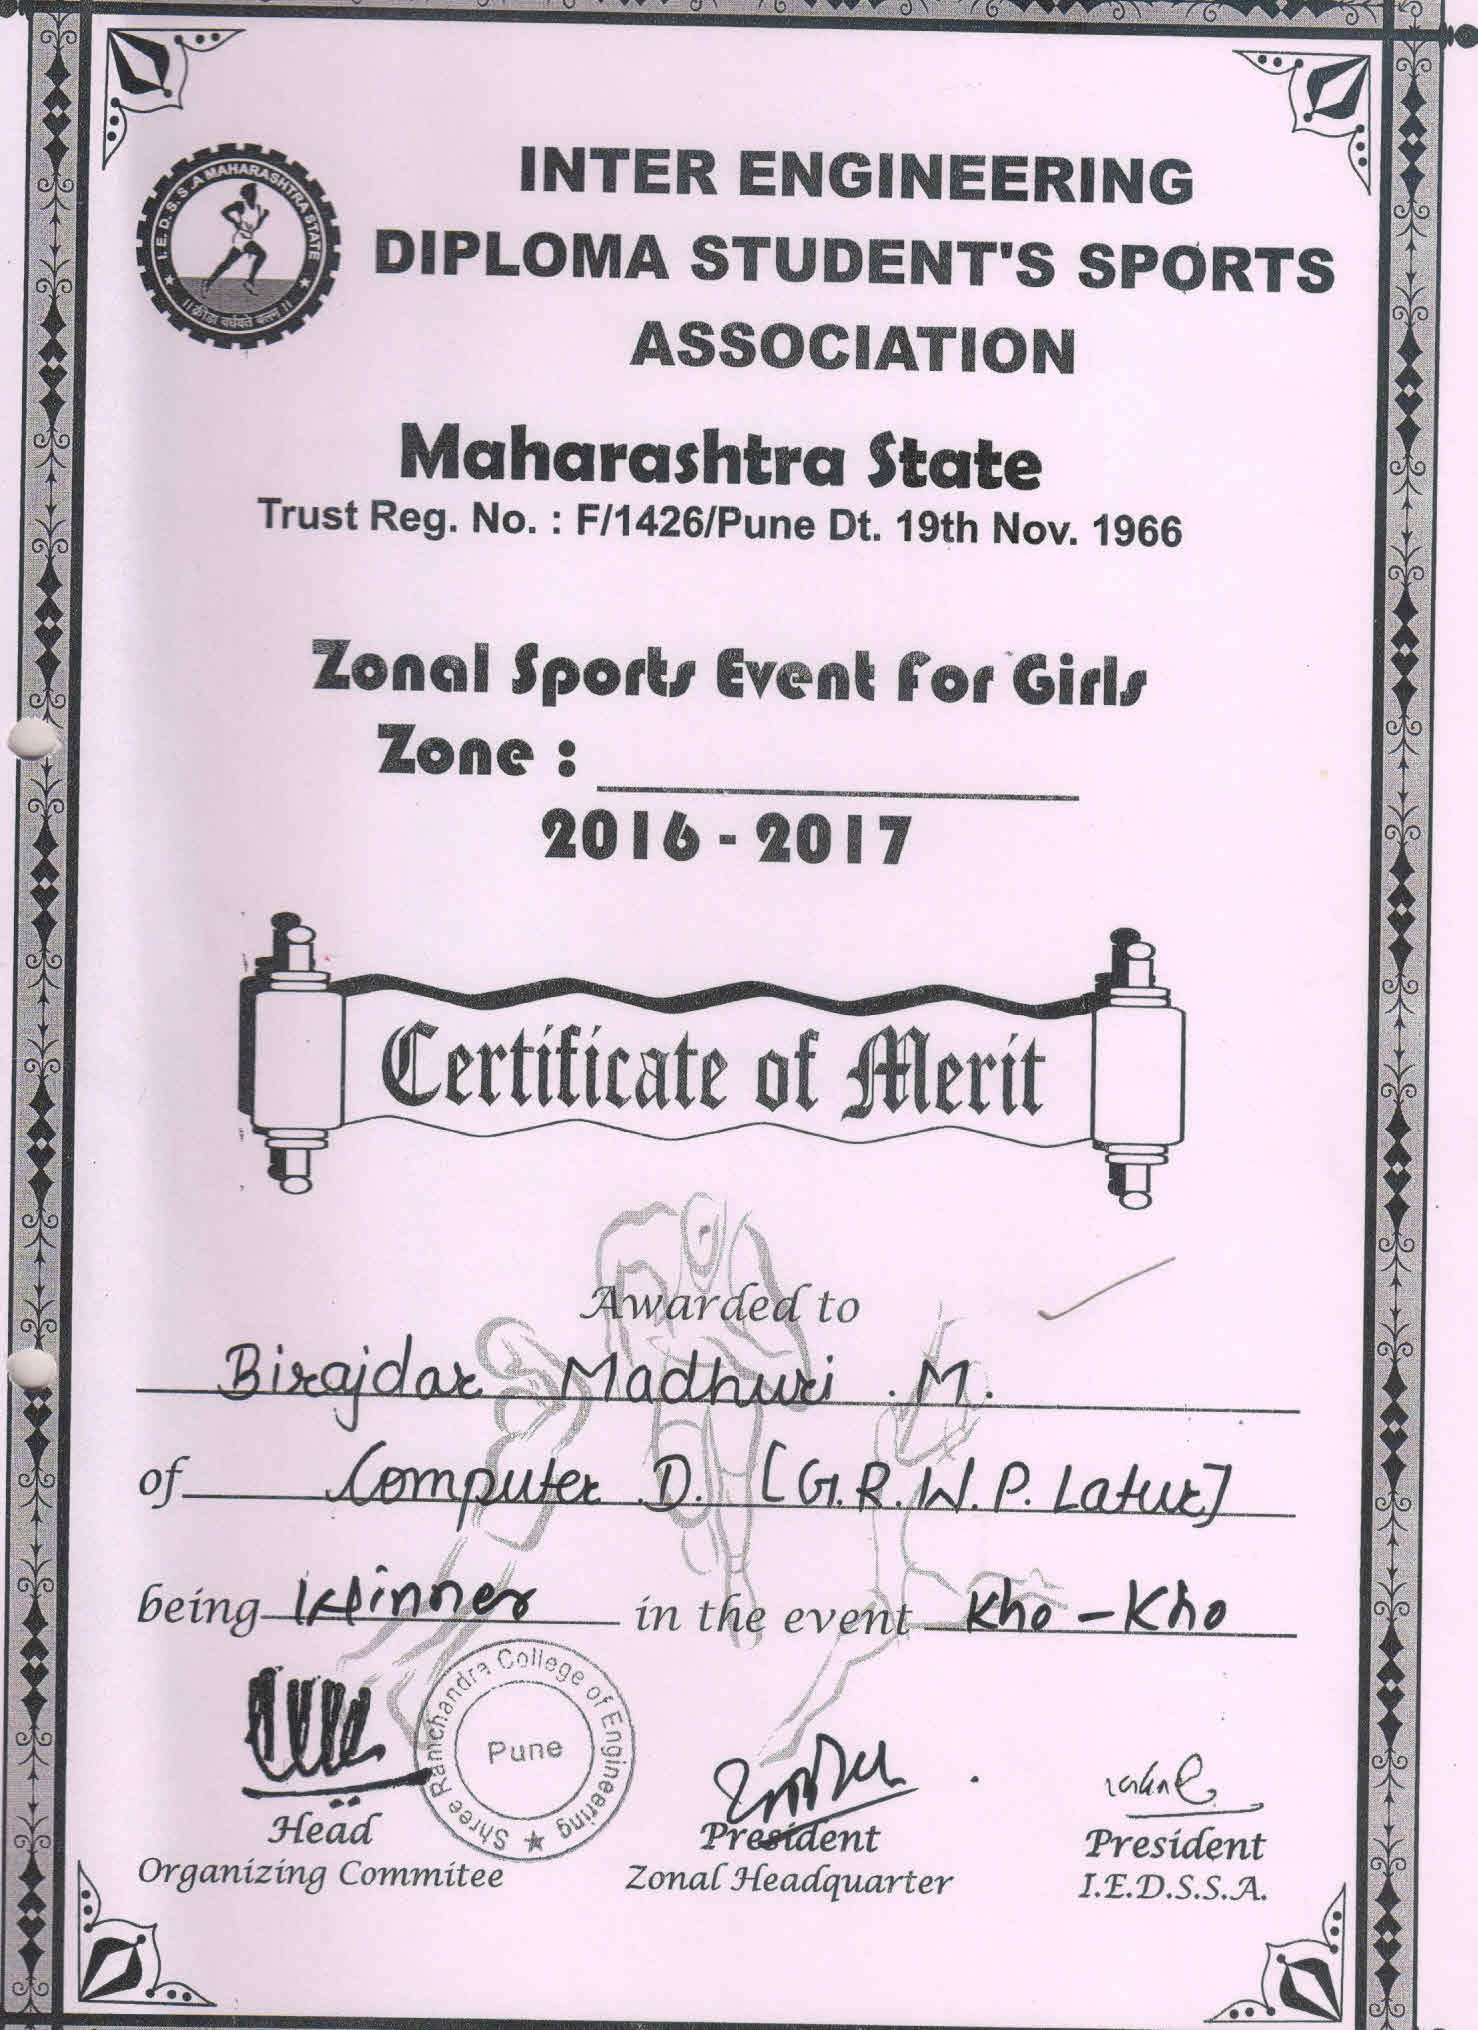 I.E.D.S.S.A MAHARASHTRA STATE
।। क्रीडा वर्धयते बलम् ।।
INTER ENGINEERING
DIPLOMA STUDENT'S SPORTS
ASSOCIATION
Maharashtra State
Trust Reg. No. : F/1426/Pune Dt. 19th Nov. 1966
Zonal Sports Event For Girls
Zone :
2016 - 2017
Certificate of Merit
Awarded to
Birajdar Madhuri . M.
of Computer D. [G.R.W.P. Latur]
being Winner in the event Kho - Kho
Shree Ramchandra College of Engineering
Pune
Head
Organizing Commitee
President
Zonal Headquarter
President
I.E.D.S.S.A.